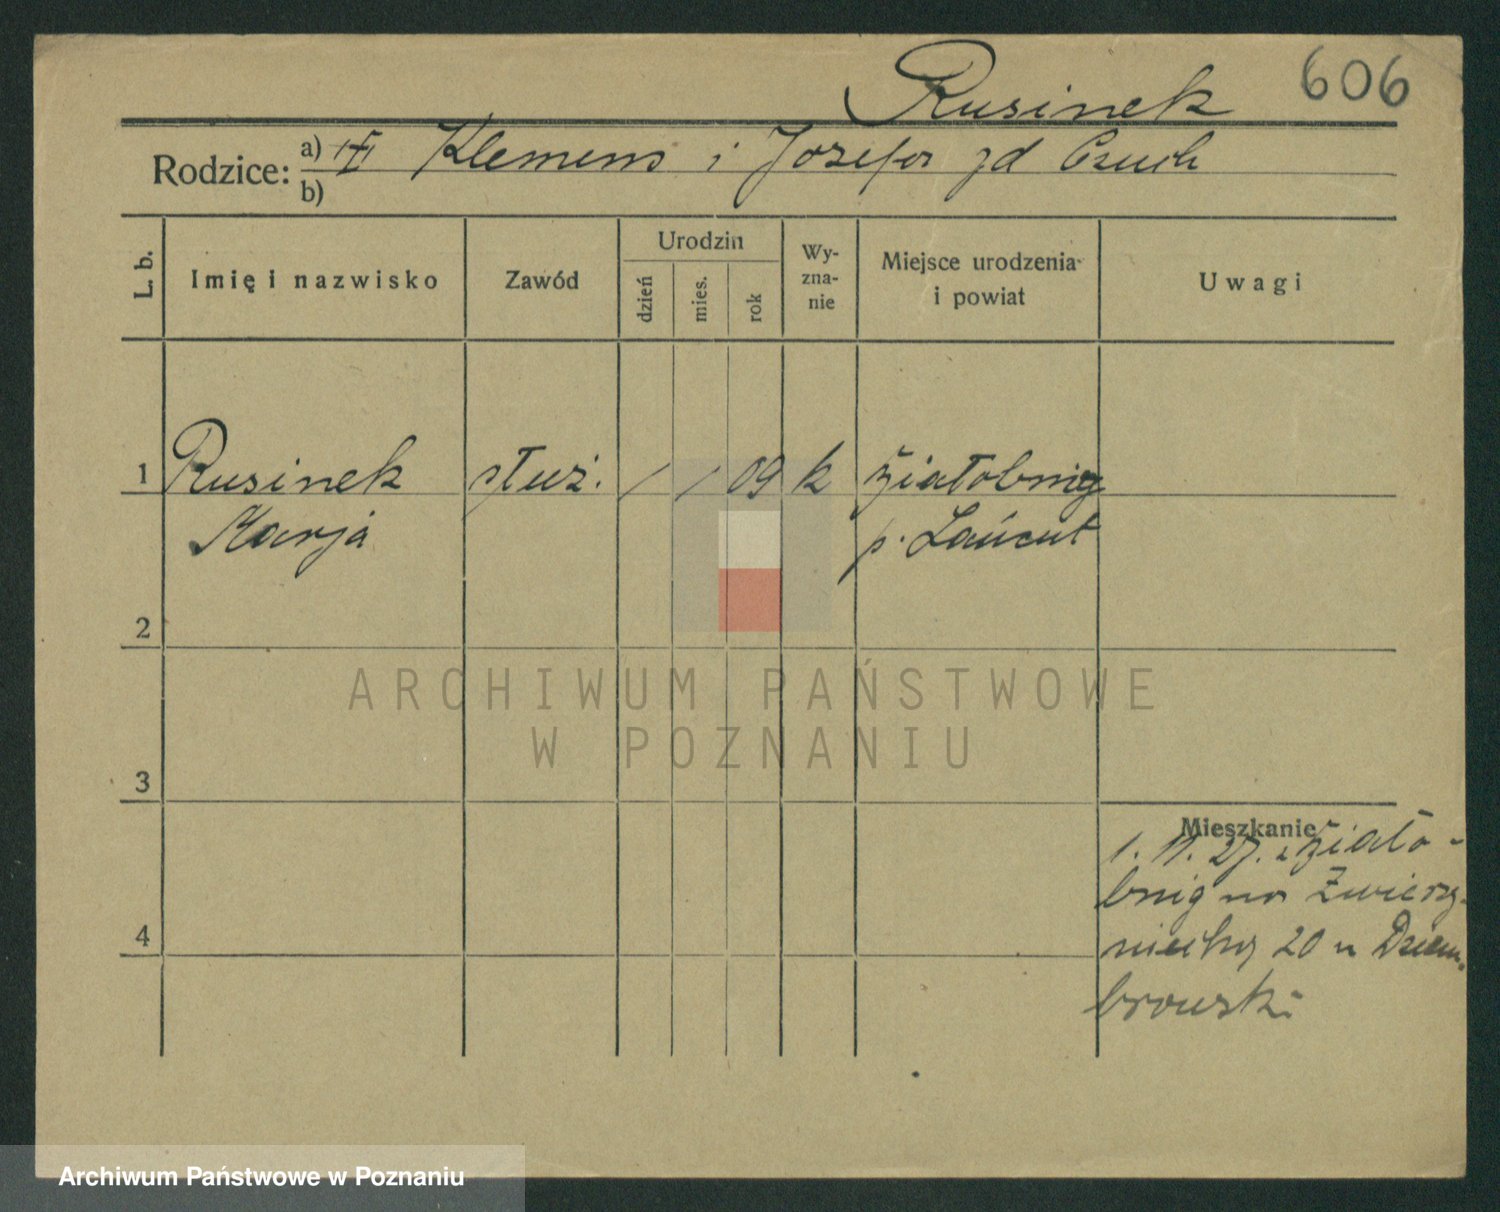 Rusinek 606
Rodzice: a) Klemens i Józefa zd Czuch
b)
L. b. Imię i nazwisko Zawód Urodzin dzień mies. rok Wy-zna-nie Miejsce urodzenia i powiat Uwagi
1 Rusinek służ. / / 09 k Działobnig
Marja p. Łańcut
2
ARCHIWUM PAŃSTWOWE
W POZNANIU
3
Mieszkanie
1. 11. 27. z
na Zwierzy-
20 u Dziem-
browski
4
Archiwum Państwowe w Poznaniu